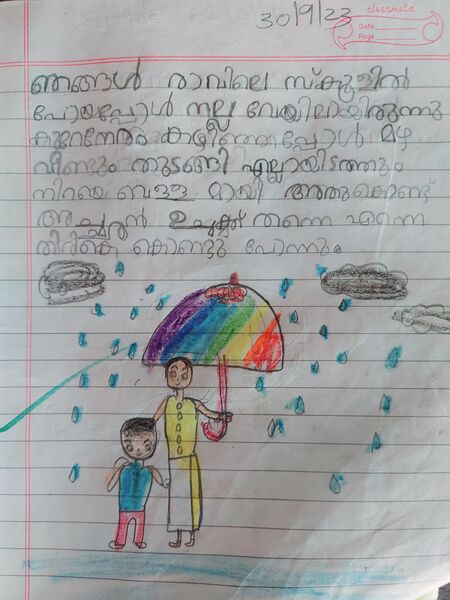 30/9/23
classmate
Date
Page
ഞങ്ങൾ രാവിലെ സ്കൂളിൽ
പോയപ്പോൾ നല്ല വേയിലായിരുന്നു
കുറനേരം കഴിഞ്ഞപ്പോൾ മഴ
വീണ്ടും തുടങ്ങി എല്ലായിടത്തും
നിറയെ വെള്ള മായി അതുകൊണ്ട്
അച്ഛൻ ഉച്ചക്ക് തന്നെ എന്നെ
തിരികെ കൊണ്ടു പോന്നു.